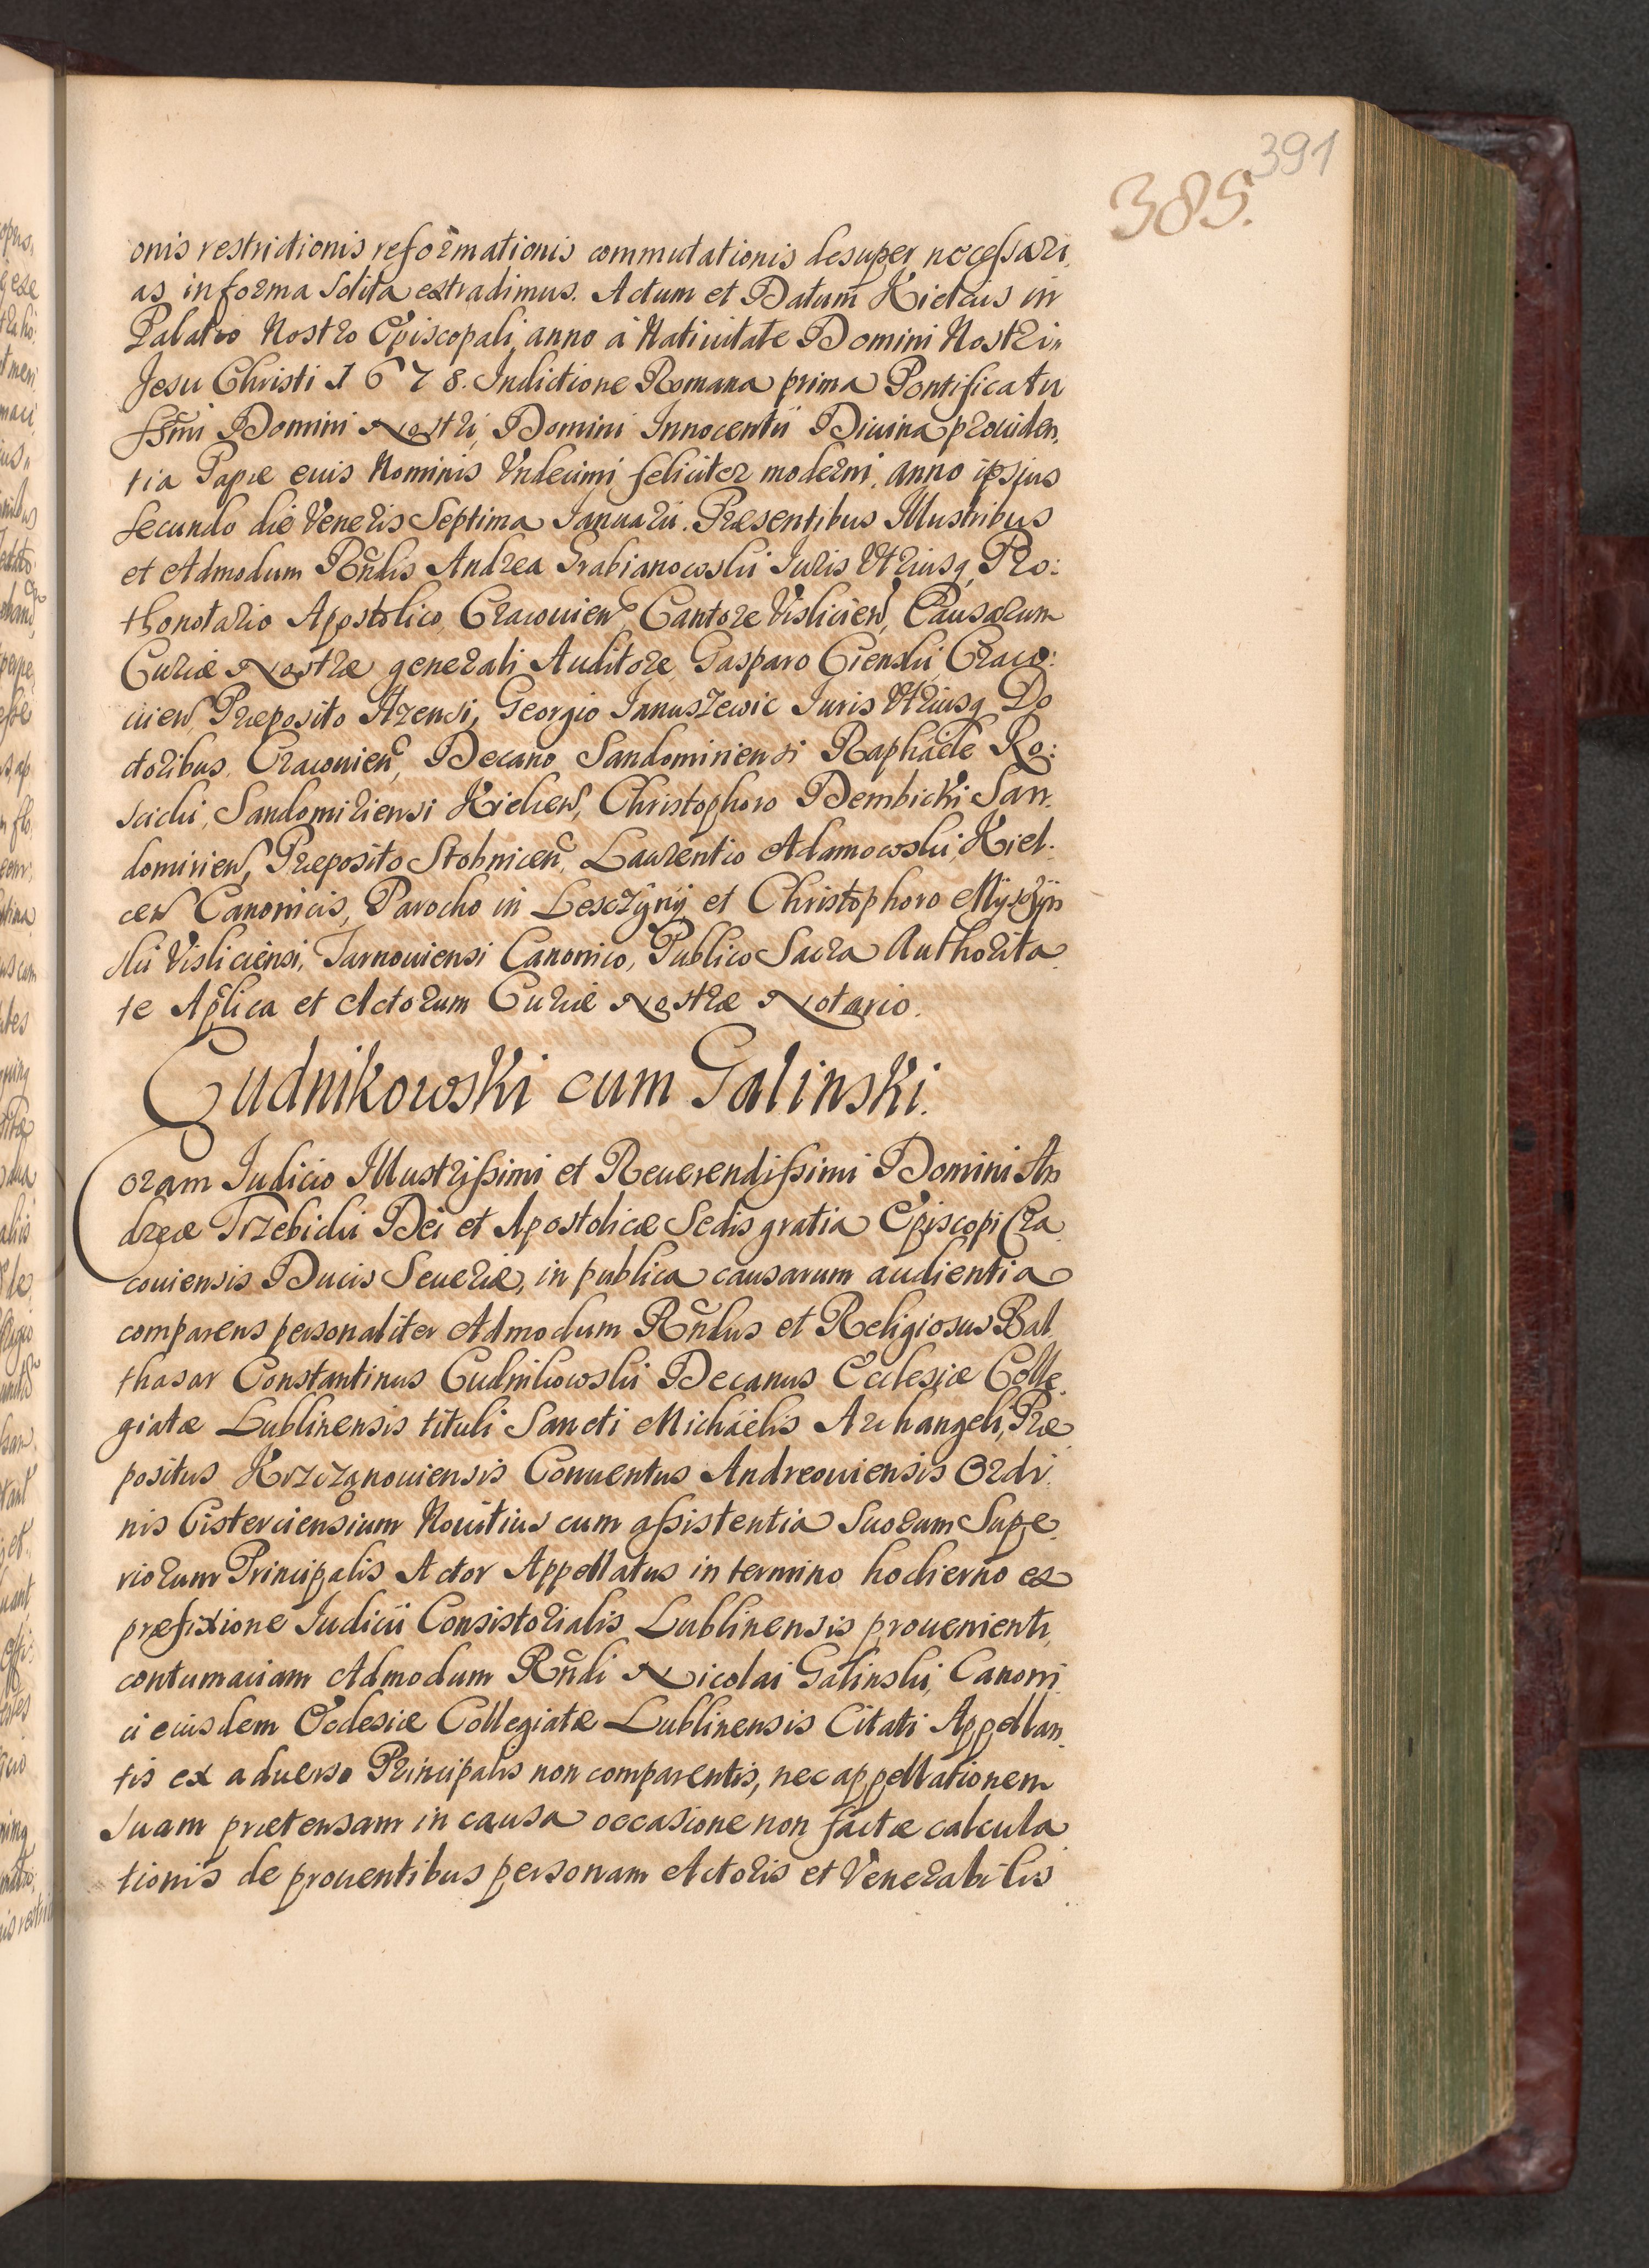 391
385.
onis restrictionis reformationis commutationis desuper necessari,
as in forma solita extradimus. Actum et Datum Kielcis in
Palatio Nostro Episcopali, anno à Natiuitate Domini Nostri
Jesu Christi 1678. Indictione Romana prima Pontificatu
ssm̃i Domini Nostri, Domini Innocentii Diuina prouiden,
tia Papæ euis Nominis Vndecimi feliciter moderni, anno ipsius
secundo die Veneris Septima Januarii. Præsentibus Illustribus
et Admodum Rñdis Andrea Grabianowski Juris Vtriusq, Pro:
thonotario Apostolico, Cracouien, Cantore Vislicien, Causarum
Curiæ Nostræ generali Auditore, Gasparo Cienski, Craco:
uien, Præposito Ilzensi, Georgio Januszewic Juris Vtriusq Do
ctoribus, Cracouien, Decano Sandomiriensi Raphaële Ro:
scicki, Sandomiriensi Kielcen, Christophoro Dembicki San,
domirien, Præposito Stobnicen, Laurentio Adamowski, Kiel.
cen Canonicis, Parocho in Lesczÿnÿ et Christophoro Mÿszÿn
ski Visliciensi, Tarnouiensi Canonico, Publico Sacra Authorita
te Aplica et Actorum Curiæ Nostræ Notario.
Cudnikowski cum Galinski.
Coram Judicio Illustrissimi et Reuerendissimi Domini An
dreæ Trzebicki Dei et Apostolicæ Sedis gratia Episcopi Cra
couiensis Ducis Seueriæ, in publica causarum audientia
comparens personaliter Admodum Rñdus et Religiosus Bal
thasar Constantinus Cudnikowski Decanus Ecclesiæ Colle,
giatæ Lublinensis tituli Sancti Michaëlis Archangeli, Præ
positus Krzczonouiensis Conuentus Andreouiensis Ordi,
nis Cisterciensium Nouitius cum assistentia Suorum Supe
riorum Principalis Actor Appellatus in termino hodierno ex
præfixione Judicii Consistorialis Lublinensis prouenienti,
contumaciam Admodum Rñdi Nicolai Galinski, Canoni
ci eiusdem Ecclesiæ Collegiatæ Lublinensis Citati Appellan,
tis ex aduerso Principalis non comparentis, nec appellationem
suam prætensam in causa occasione non factæ calcula
tionis de prouentibus personam Actoris et Venerabilis